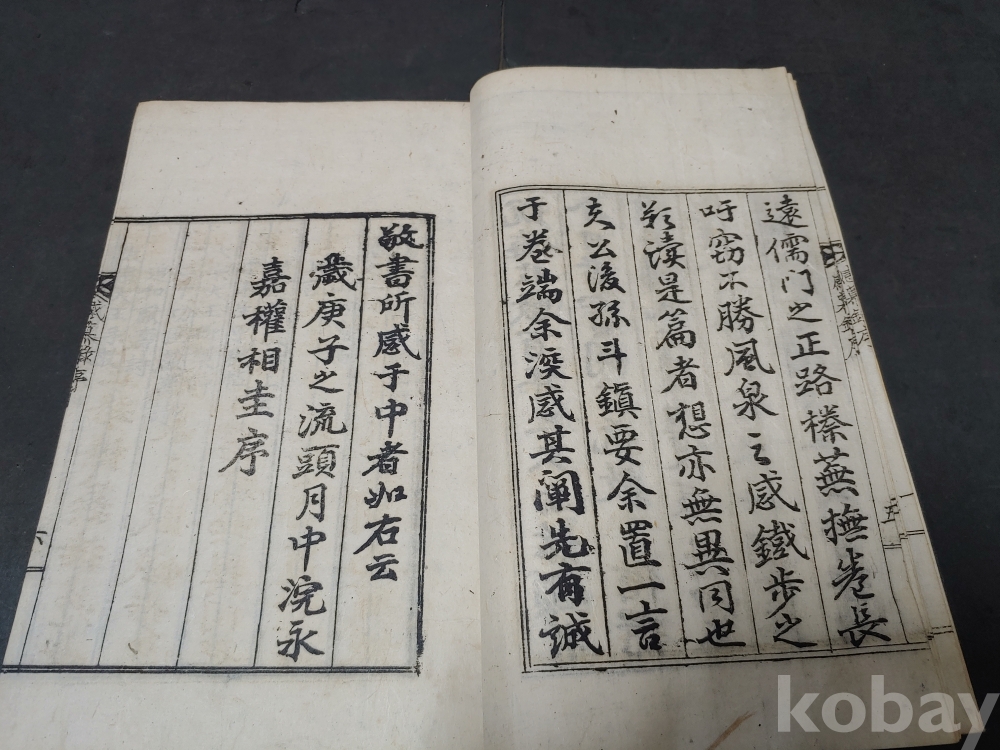 遠儒门之正路榛蕪撫卷長
吁窃不勝風泉之感鐵步之
讀是篇者想亦無異同也
夫公後孫斗鎮要余置一言
于卷端余深感其闡先有誠
五
敬書所感于中者如右云
歲庚子之流頭月中浣永
嘉權相圭序
六
kobay